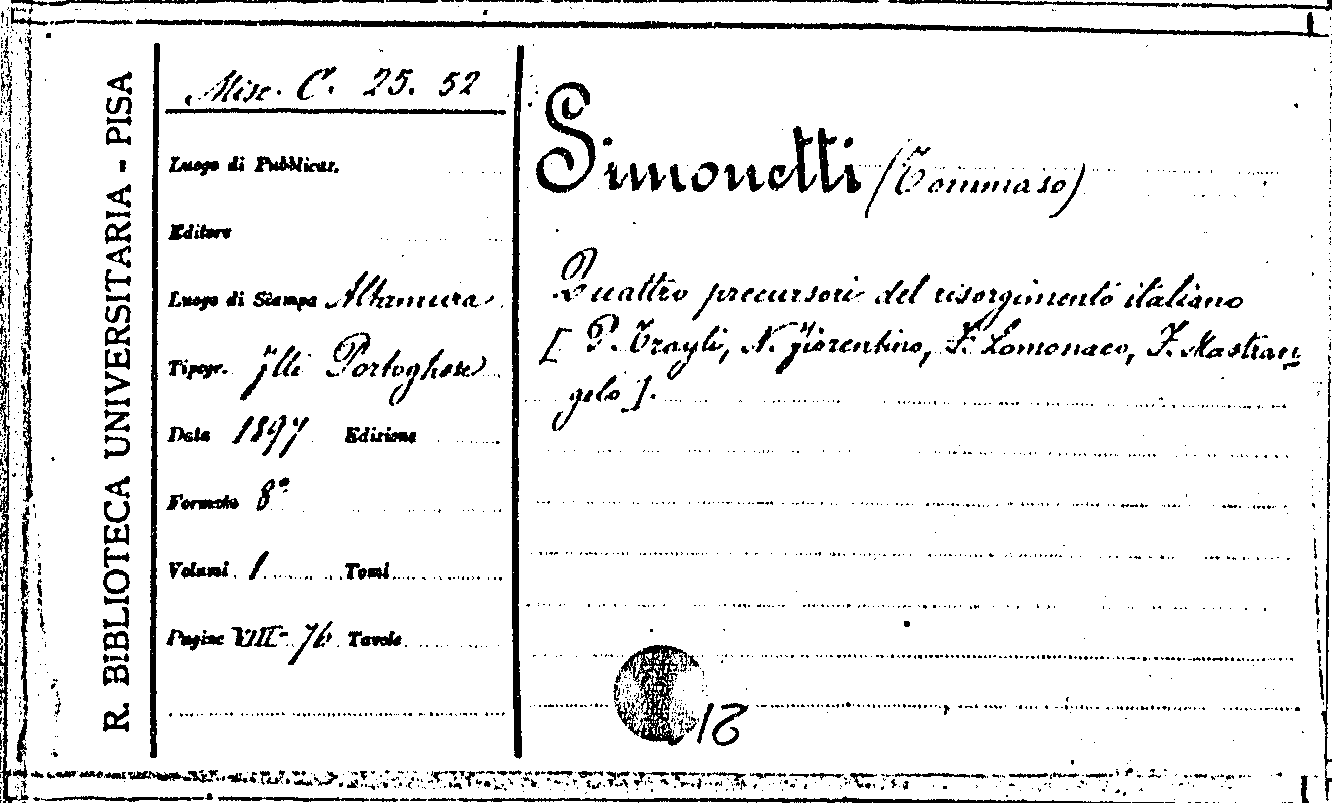 R. BIBLIOTECA UNIVERSITARIA - PISA
Misc. C. 25. 52
Luogo di Pubblicaz.
Editore
Luogo di Stampa Altamura
Tipogr. Flli Portoghese
Data 1897 Edizione
Formato 8°
Volumi 1 Tomi
Pagine VIII-76 Tavole
Simonetti (Tommaso)
Quattro precursori del risorgimento italiano
[P. Trayli, N. Fiorentino, F. Lomonaco, F. Mastran
gelo].